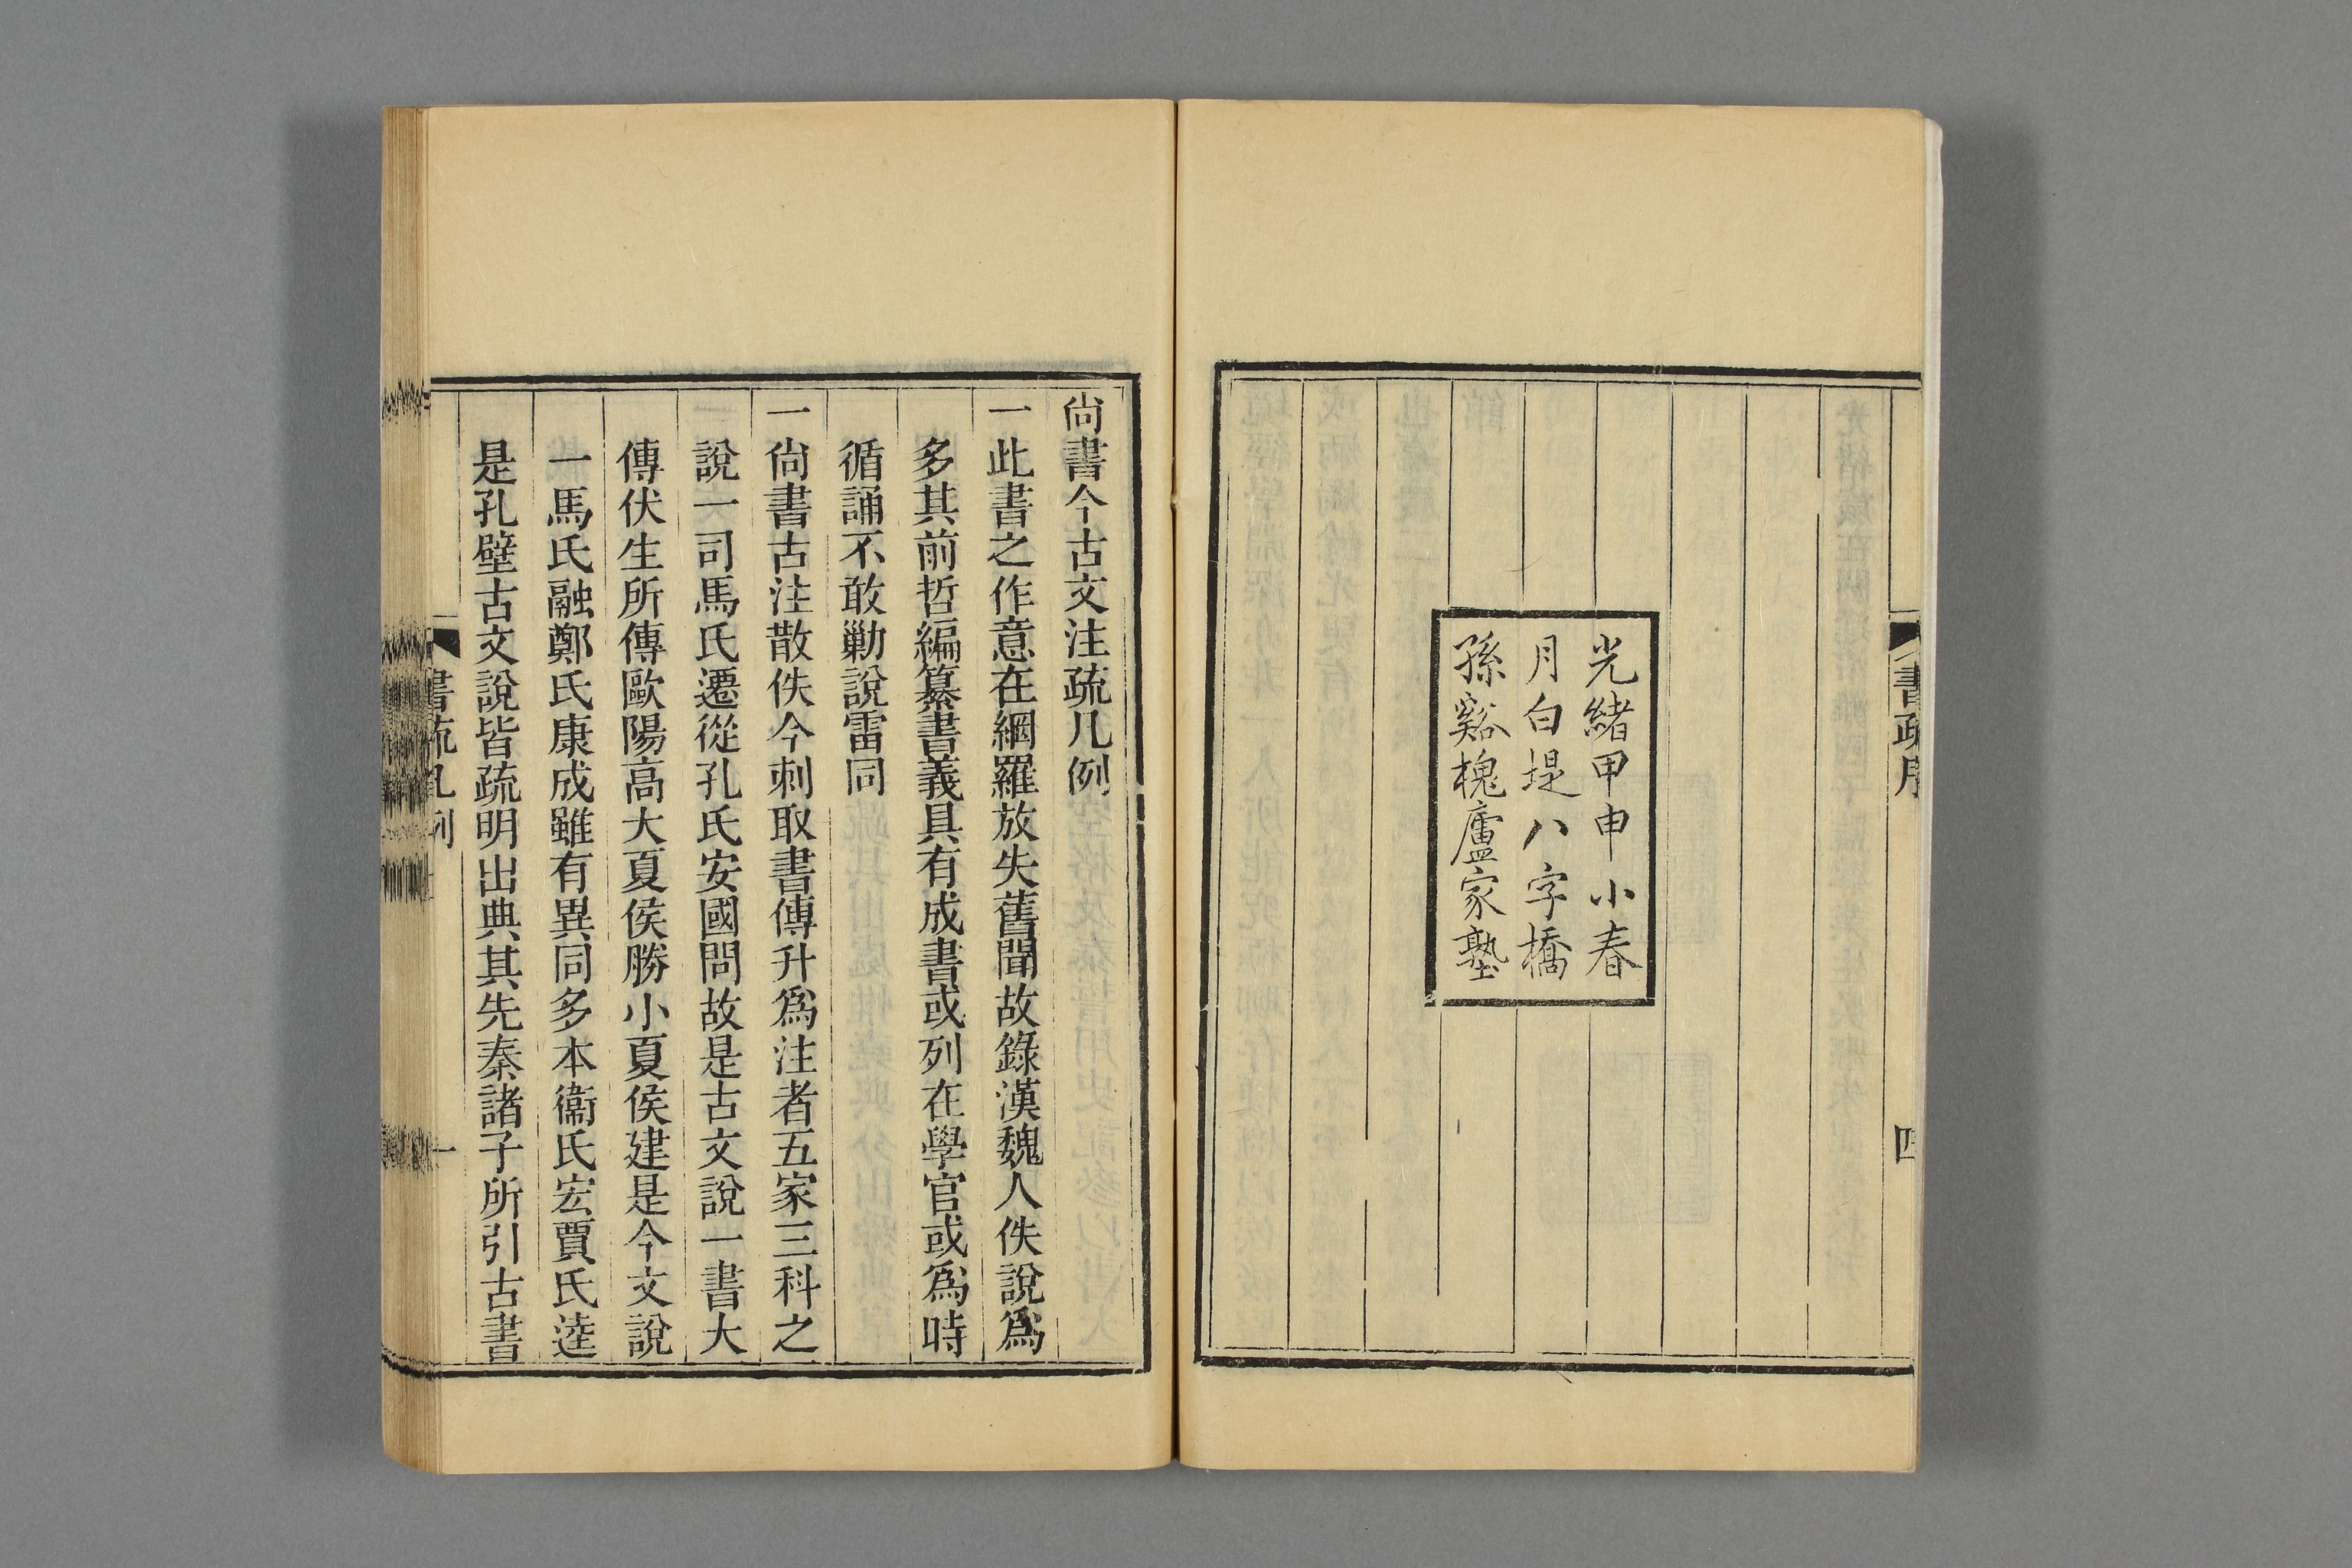 書疏序
四
光緒甲申小春
月白堤八字橋
孫谿槐廬家塾
尙書今古文注疏凡例
一此書之作意在網羅放失舊聞故錄漢魏人佚說爲
多其前哲編纂書義具有成書或列在學官或爲時
循誦不敢勦說雷同
一尙書古注散佚今刺取書傳升爲注者五家三科之
說一司馬氏遷從孔氏安國問故是古文說一書大
傳伏生所傳歐陽高大夏侯勝小夏侯建是今文說
一馬氏融鄭氏康成雖有異同多本衞氏宏賈氏逵
是孔壁古文說皆疏明出典其先秦諸子所引古書
書疏凡例
一